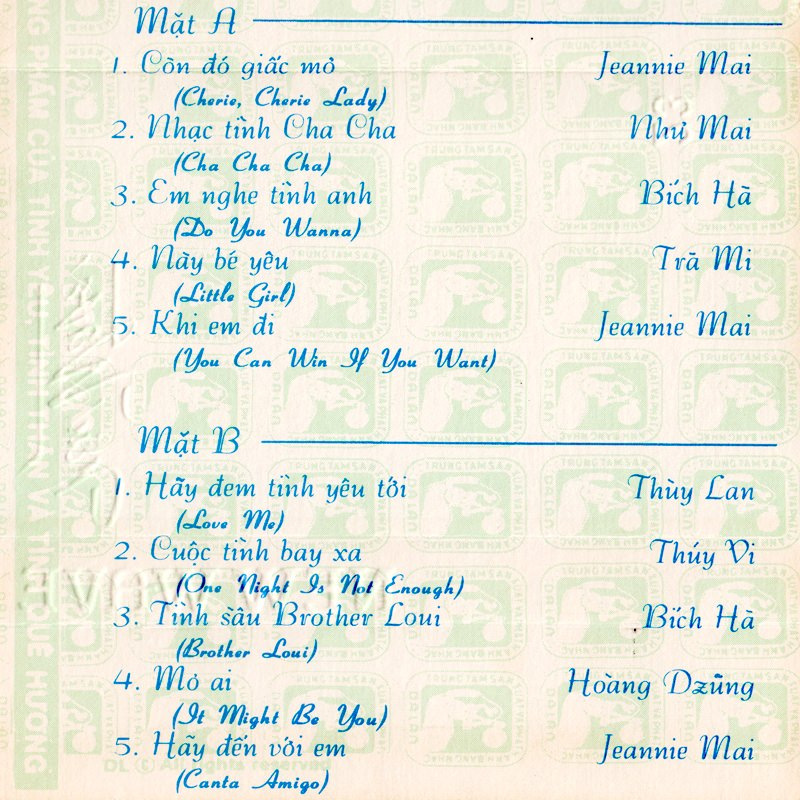 Mặt A
1. Còn đó giấc mơ Jeannie Mai
(Cherie, Cherie Lady)
2. Nhạc tình Cha Cha Như Mai
(Cha Cha Cha)
3. Em nghe tình anh Bích Hà
(Do You Wanna)
4. Này bé yêu Trà Mi
(Little Girl)
5. Khi em đi Jeannie Mai
(You Can Win If You Want)
Mặt B
1. Hãy đem tình yêu tới Thùy Lan
(Love Me)
2. Cuộc tình bay xa Thúy Vi
(One Night Is Not Enough)
3. Tình sầu Brother Loui Bích Hà
(Brother Loui)
4. Mơ ai Hoàng Dzũng
(It Might Be You)
5. Hãy đến với em Jeannie Mai
DL © All rights reserved
(Canta Amigo)